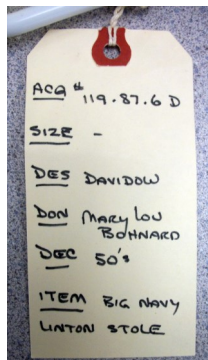 ACQ # 119.87.6 D
SIZE -
DES DAVIDOW
DON MARY LOU
BOHNARD
DEC 50's
ITEM BIG NAVY
LINTON STOLE